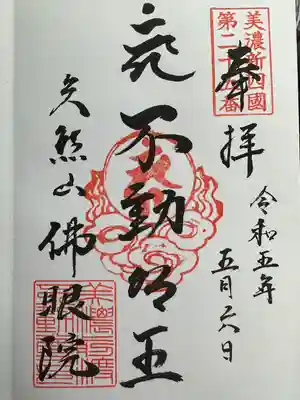 美濃新四國
第二十番
奉拝
令和五年
五月六日
不動明王
矢熊山
佛眼院